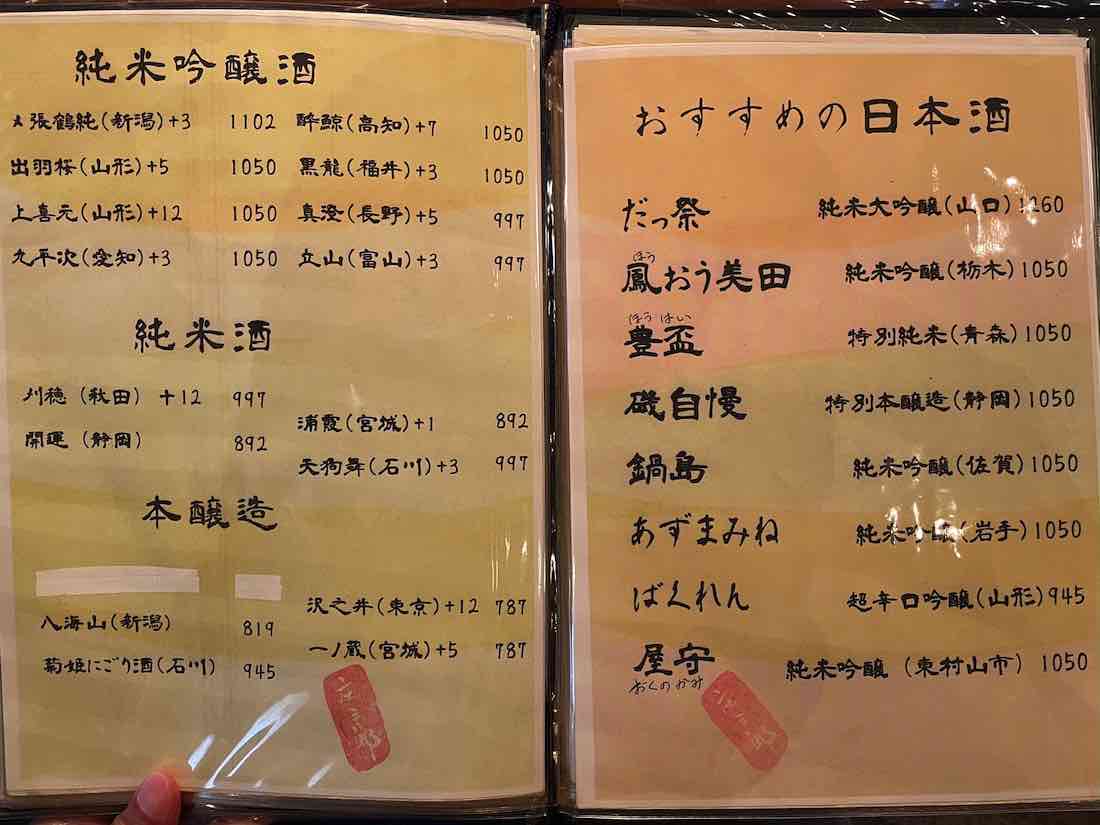 純米吟醸酒
〆張鶴純(新潟)+3 1102
出羽桜(山形)+5 1050
上喜元(山形)+12 1050
九平次(愛知)+3 1050
酔鯨(高知)+7 1050
黒龍(福井)+3 1050
真澄(長野)+5 997
立山(富山)+3 997
純米酒
刈穂(秋田)+12 997
開運(静岡) 892
浦霞(宮城)+1 892
天狗舞(石川)+3 997
本醸造
八海山(新潟) 819
菊姫にごり酒(石川) 945
沢之井(東京)+12 787
一ノ蔵(宮城)+5 787
おすすめの日本酒
だっ祭 純米大吟醸(山口)1260
ほう
鳳おう美田 純米吟醸(栃木)1050
ほうはい
豊盃 特別純米(青森)1050
磯自慢 特別本醸造(静岡)1050
鍋島 純米吟醸(佐賀)1050
あずまみね 純米吟醸(岩手)1050
ばくれん 超辛口吟醸(山形)945
屋守 純米吟醸(東村山市)1050
おくのかみ